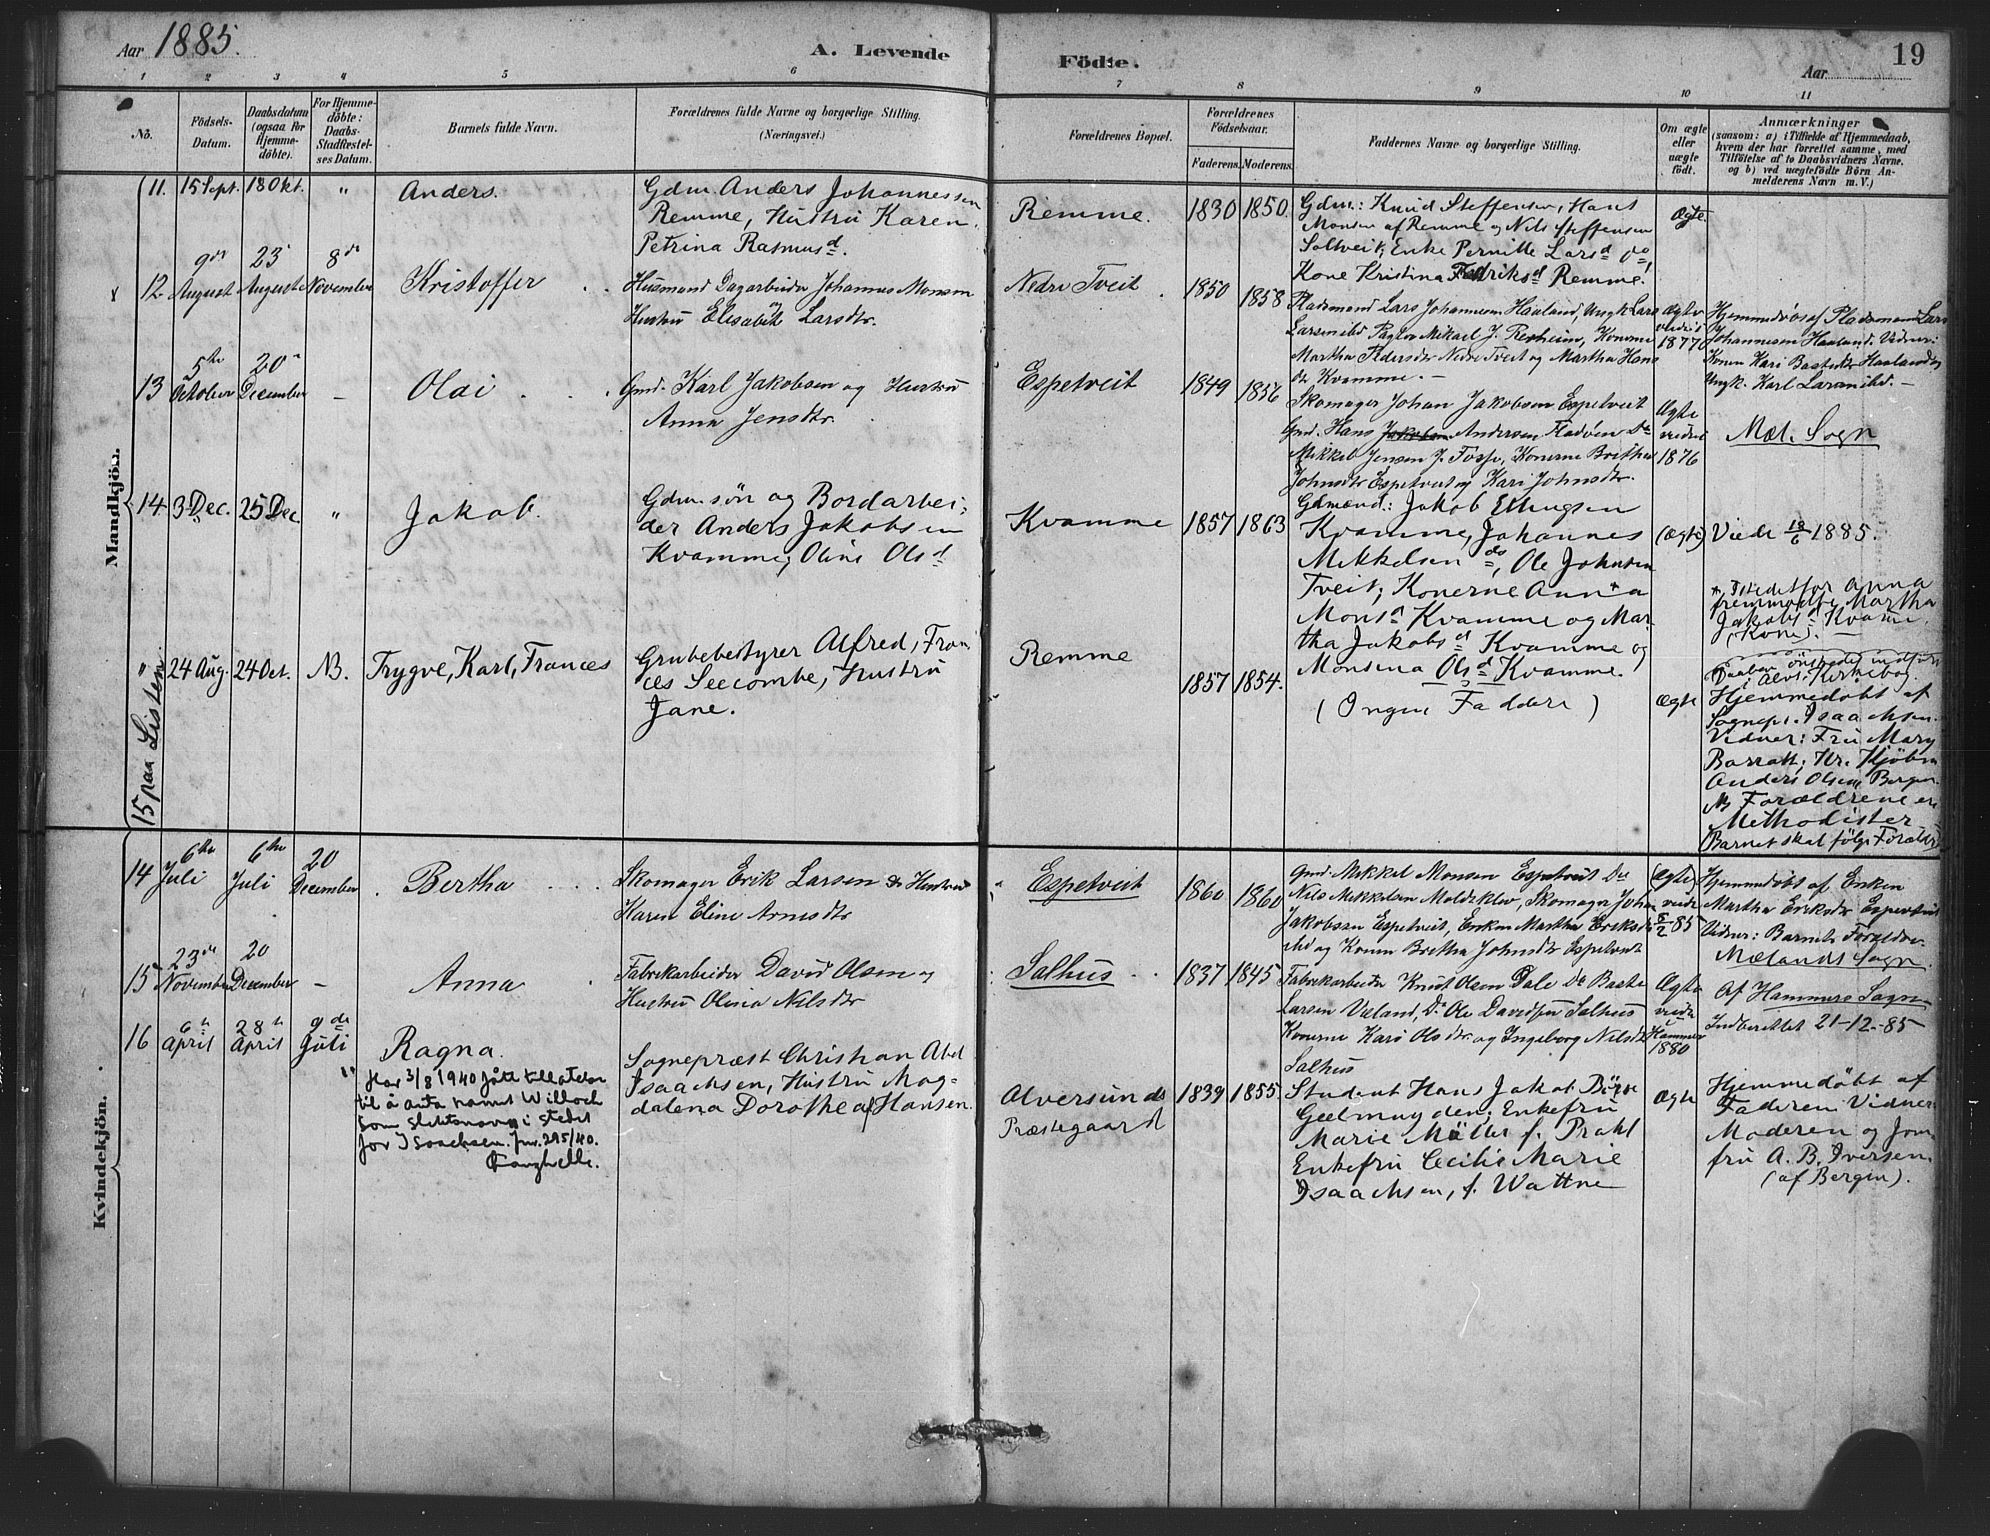 Aar 1885.
A. Levende Födte.
19
Aar
1 2 3 4 5 6 7 8 9 10 11
No.
Födsels-
Datum.
Daabsdatum
(ogsaa for
Hjemme-
döbte).
For Hjemme-
döbte:
Daabs-
Stadfæstel-
ses Datum.
Barnets fulde Navn.
Forældrenes fulde Navne og borgerlige Stilling.
(Næringsvei.)
Forældrenes Bopæl.
Forældrenes
Födselsaar.
Faderens. Moderens.
Faddernes Navne og borgerlige Stilling.
Om ægte
eller
uægte
födt.
Anmærkninger
(saasom: a) i Tilfælde af Hjemmedaab,
hvem der har forrettet samme, med
Tilföielse af to Daabsvidners Navne.
og b) ved uægtefödte Börn An-
melderens Navn m. V.)
Mandkjön.
11. 15 Sept. 18 Okt. "
Anders.
Gdm. Anders Johannessen
Remme, Hustru Karen
Petrina Rasmusd.
Remme.
1830 1850.
Gdm.: Knud Steffensen, Hans
Monsen af Remme og Nils Steffensen
Soltveit; Enke Pernille Larsd do,
Kone Kristina Fredriksd Remme.
Ægte
x 12 9de August 23 August 8de November
Kristoffer
Husmand Dagarbeider Johannes Monsen
Hustru Elisabet Larsdtr.
Nedre Tveit
1850 1858
Pladsmand Lars Johannesen Haaland, Ungk Lars
Larsen ibd Pagten Mikael J. Risheim, Konerne
Martha Pedersdtr Nedre Tveit og Martha Hans
dtr Kvamme. —
Ægte
viede i
1877
Hjemmedöbt af Pladsmand Lars
Johannesen Haaland. Vidner:
Konen Kari Bastesdtr Haaland og
Ungk. Karl Larsen ibd. —
13 5te October 20de December —
Olai
Gmd. Karl Jakobsen og Hustru
Anna Jensdtr.
Espetveit
1849 1856
Skomager Johan Jakobsen Espetveit
Gmd. Hans Andersen Fladöen Do
Mikkel Jensen J. Fosse, Konerne Brithe
Johnsdtr Espetveit og Kari Johnsdtr.
Ægte
viede
1876
Mæl. Sogn
14 3 Dec. 25 Dec. "
Jakob.
Gdm. sön og Bordarbei-
der Anders Jakobsen
Kvamme, Oline Olsd
Kvamme
1857 1863
Gdmænd: Jakob Ellingsen
Kvamme, Johannes
Mikkelsen ds, Ole Johnsen
Tveit; Konerne Anna
Monsd Kvamme og Mar-
tha Jakobsd Kvamme og
Monsina Olsd Kvamme.
(Ægte)
Viede 18/6 1885.
x, Istedetfor Anna
fremmødte Martha
Jakobsd Kvamme
(Kone). —
" 24 Aug. 24 Oct. NB.
Trygve, Karl, Frances
Grubebestyrer Alfred, Fran-
ces Seecombe, Hustru
Jane.
Remme
1857 1854.
( Ingen Faddere )
Ægte
Daaben önskedes indfört
i Alvs. Kirkebog.
Hjemmedöbt af
Sognepr. Isaachsen.
Vidner: Fru Mary
Barratt; Hr. Kjöbm
Anders Olsen, Bergen
NB Forældrene er
Methodister
(Barnet skal fölge Forældr.)
15 paa Listen.
Kvindekjön.
14 6te Juli 6te Juli 20 December
Bertha
Skomager Erik Larsen & Hustru
Karen Eline Arnesdtr
Espetveit
1860 1860
Gmd. Mikkel Monsen Espetveit Do
Nils Mikkelsen Moldeklev, Skomager Johan
Jakobsen Espetveit, Enken Martha Eriksdtr
ibd og Konen Brithe Johnsdtr Espetveit
(Ægte)
viede
8/2 85
Hjemmedöbt af Enken
Martha Eriksdtr Espetveit
Vidner: Barnets Forældre.
Mælands Sogn.
15 23de November 20 December —
Anna
Fabrikarbeider David Olsen og
Hustru Olina Nilsdtr
Salhus
1837 1845
Fabrikarbeider Knut Olsen Dale Do Baste
Larsen Væland, Do Ole Davidsen Salhus
Konerne Kari Olsdtr og Ingeborg Nilsdtr
Salhus
Ægte
viede
Hammer
1880
Af Hammers Sogn
Indberettet 21-12-85
16 6te April 28te April 9de Juli
Ragna.
Har 3/8 1940 fått tillatelse
til å anta navnet Willoch
som slektsnavn i stedet
for Isaachsen. Jnr. 295/40.
Sognepræst Christian Abel
Isaachsen, Hustru Mag-
dalena Dorothea f. Hansen.
Alversunds
Præstegaard
1839 1855.
Student Hans Jakob Börse
Geelmuyden; Enkefru
Marie Möller f. Prahl
Enkefru Cecilie Marie
Isaachsen, f. Wattne
Ægte
Hjemmedöbt af
Faderen Vidner
Moderen og Jom-
fru A. B. Iversen
(af Bergen).